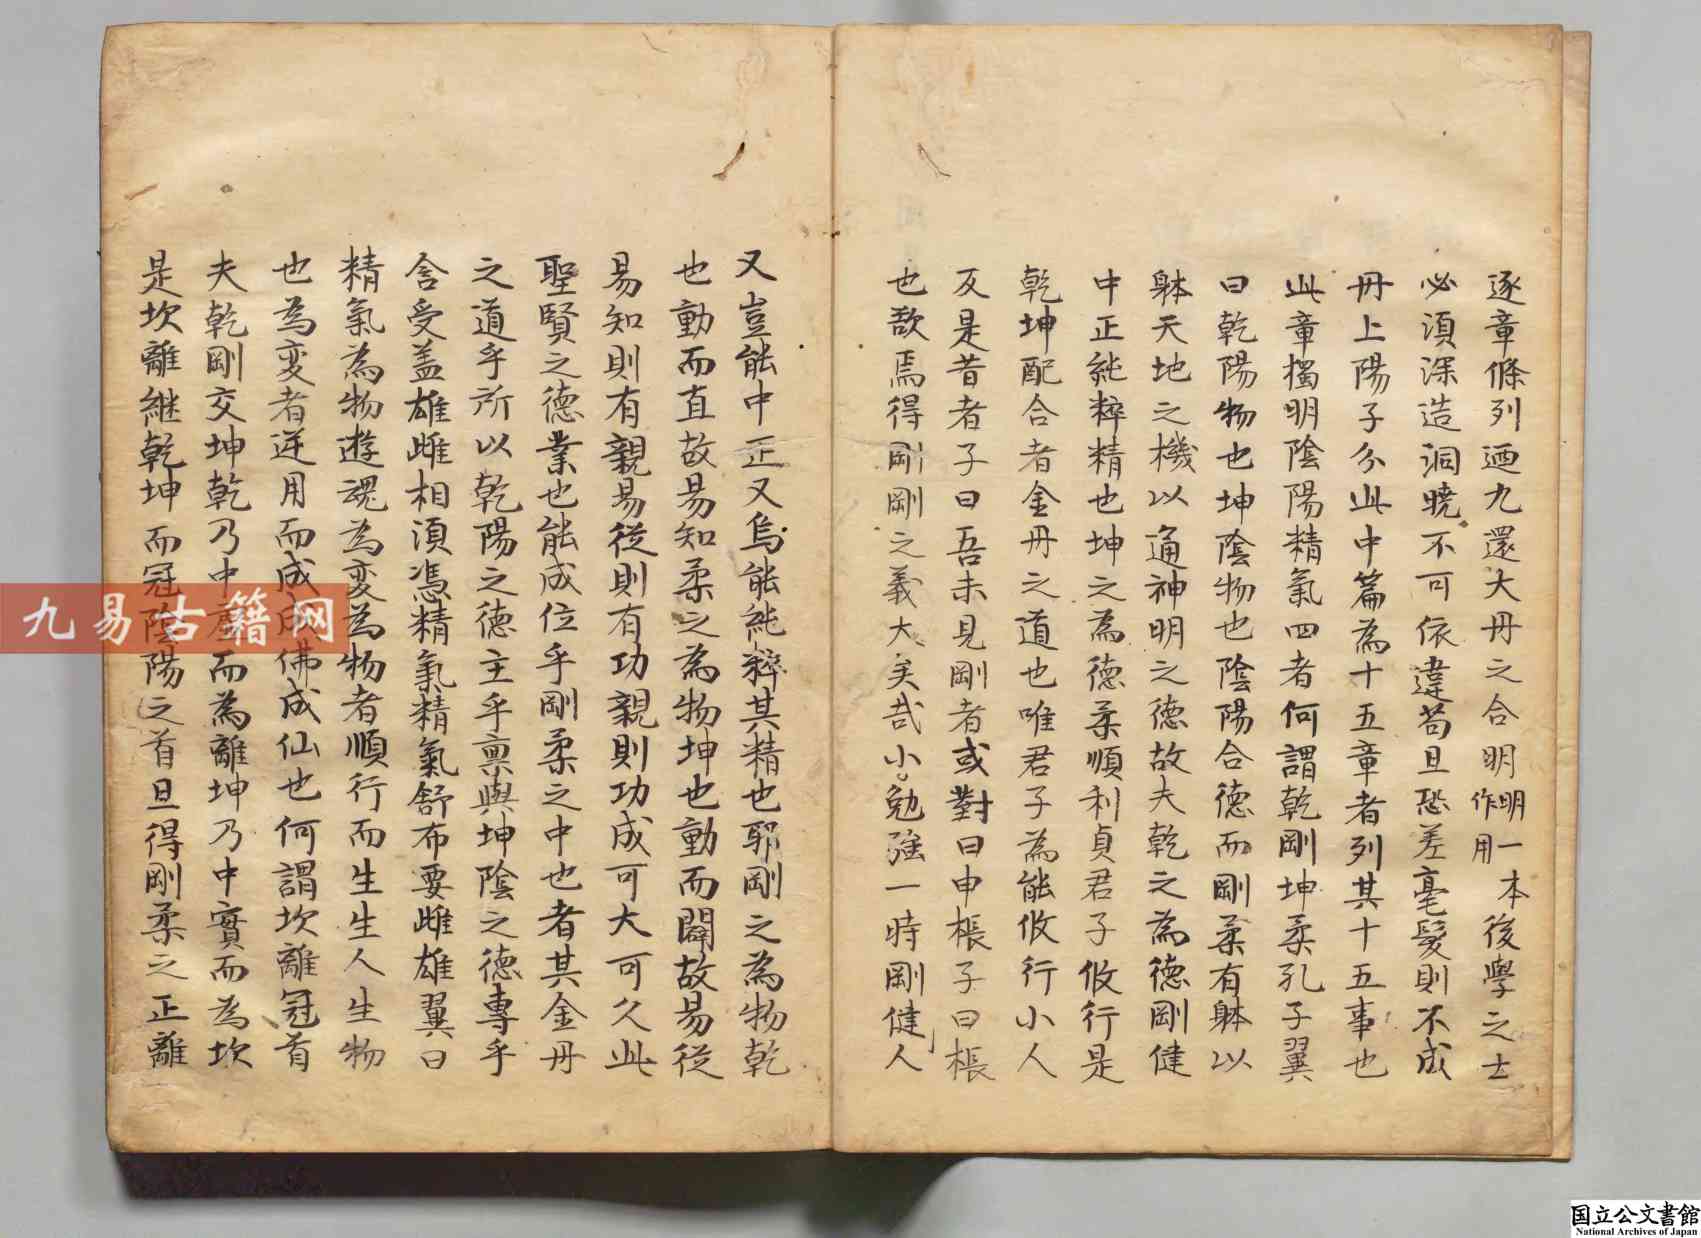 逐章條列廼九還大丹之合明一本明作用後學之士
必須深造洞曉不可依違苟且恐差毫髮則不成
丹上陽子分此中篇為十五章者列其十五事也
此章獨明陰陽精氣四者何謂乾剛坤柔孔子翼
曰乾陽物也坤陰物也陰陽合德而剛柔有躰以
躰天地之機以通神明之德故夫乾之為德剛健
中正純粹精也坤之為德柔順利貞君子攸行是
乾坤配合者金丹之道也唯君子為能攸行小人
反是昔者子曰吾未見剛者或對曰申棖子曰棖
也慾焉得剛剛之義大矣哉小勉強一時剛健人
又豈能中正又烏能純粹其精也耶剛之為物乾
也動而直故易知柔之為物坤也動而闢故易從
易知則有親易從則有功親則功成可大可久此
聖賢之德業也能成位乎剛柔之中也者其金丹
之道乎所以乾陽之德主乎禀與坤陰之德專乎
含受盖雄雌相須憑精氣精氣舒布要雌雄翼曰
精氣為物遊魂為変為物者順行而生生人生物
也為変者逆用而成成佛成仙也何謂坎離冠首
夫乾剛交坤乾乃中虛而為離坤乃中實而為坎
是坎離継乾坤而冠陰陽之首且得剛柔之正離
九易古籍网
国立公文書館
National Archives of Japan